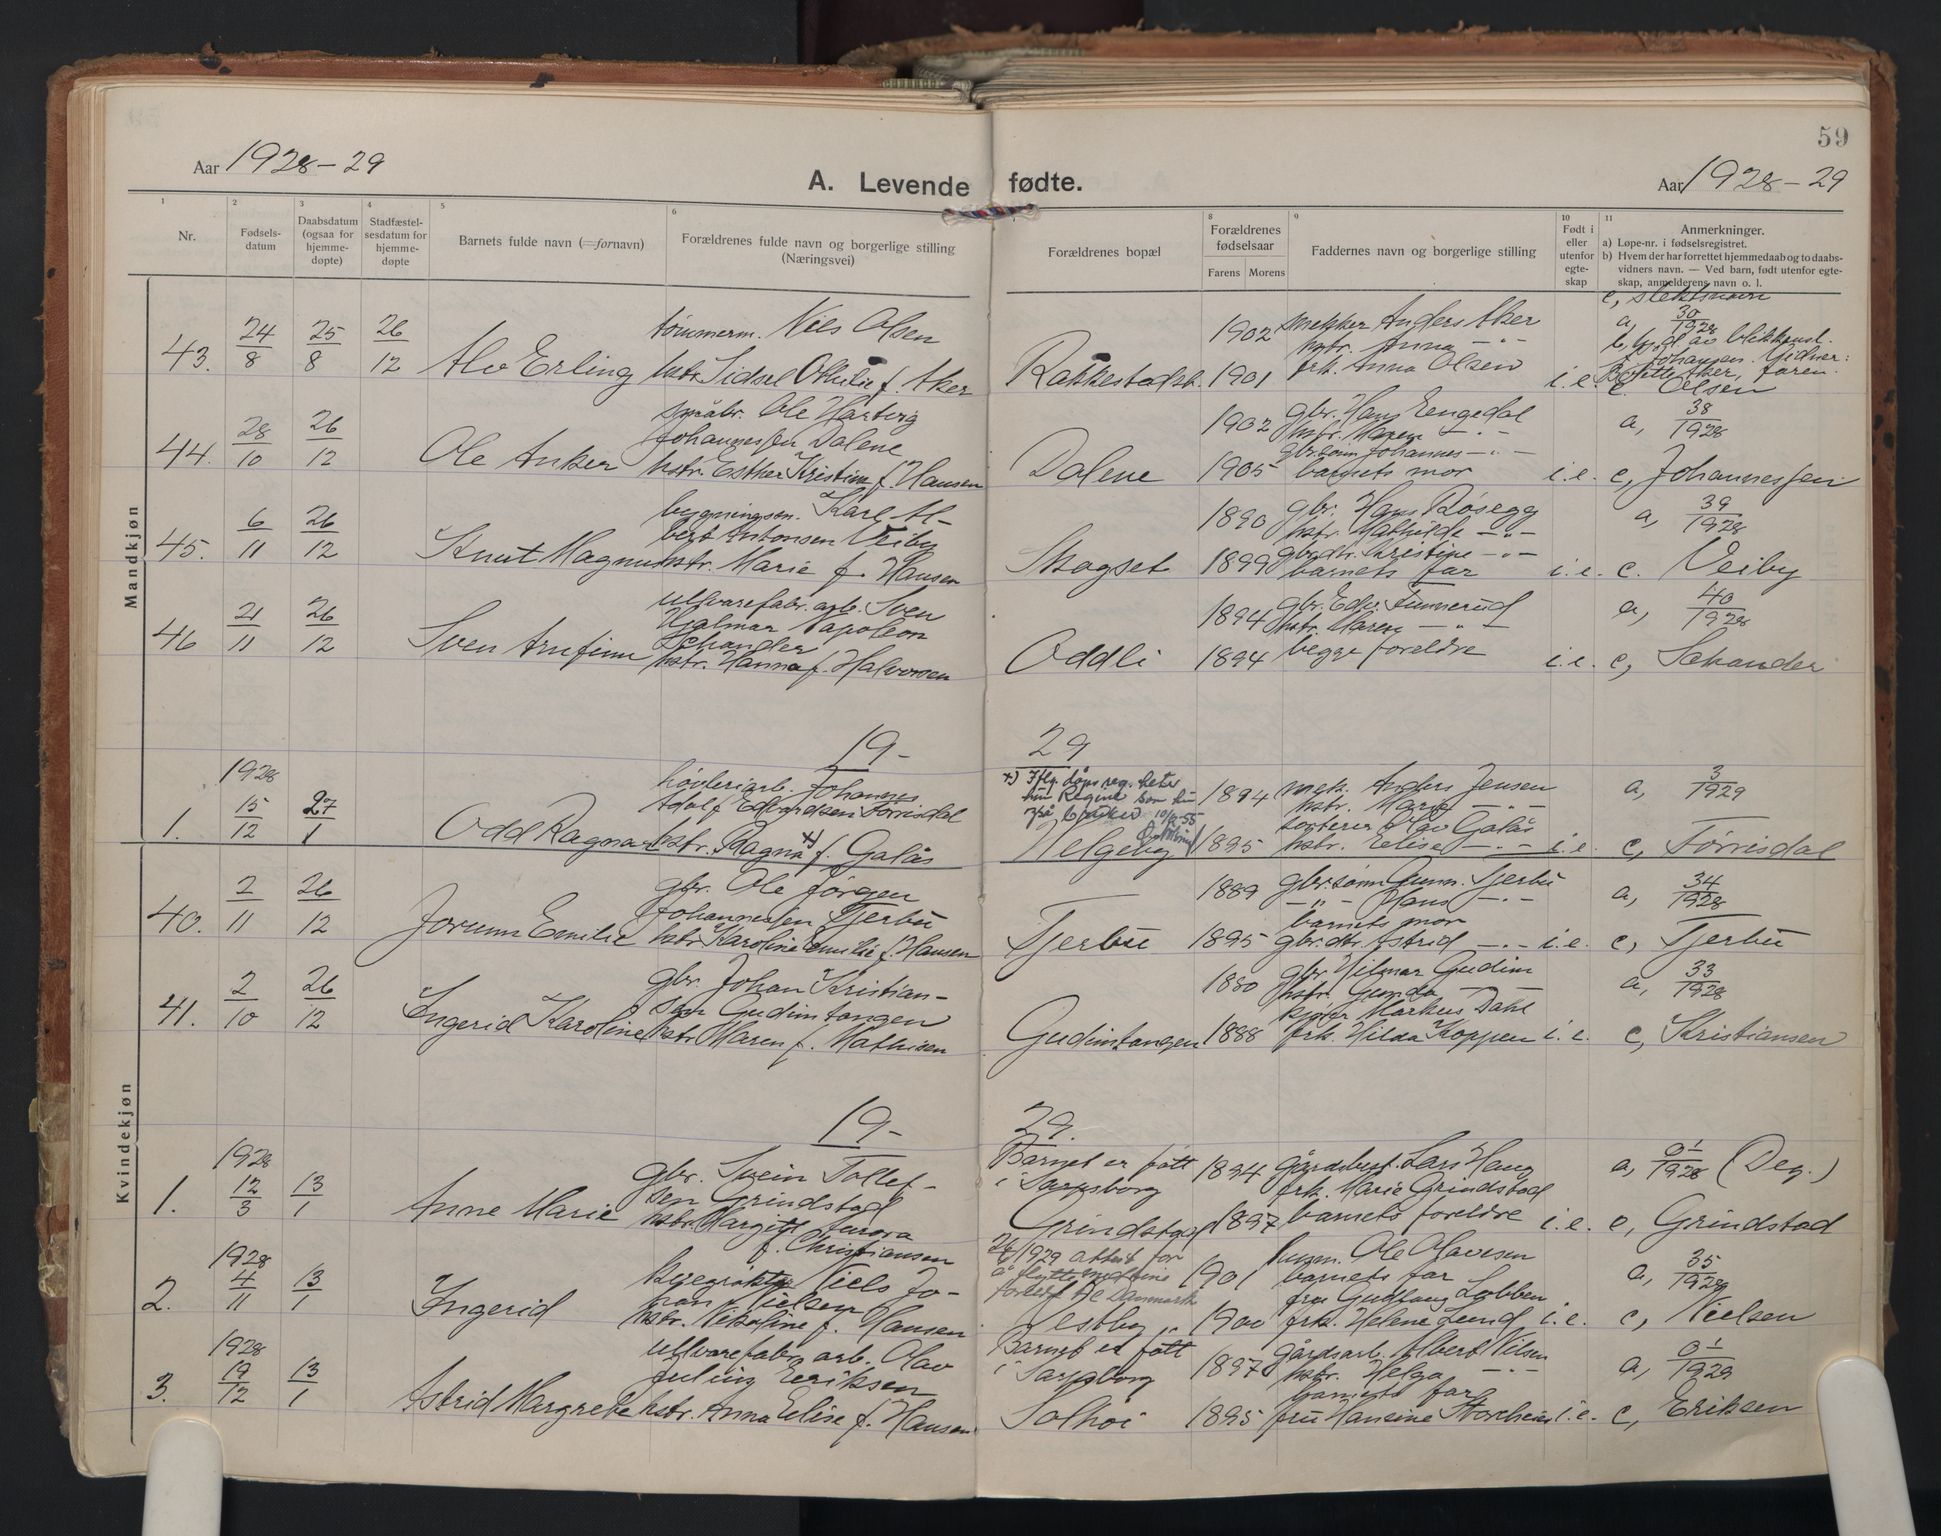 59
Aar 1928-29
A. Levende fødte.
Aar 1928-29
1 Nr.
2 Fødsels-datum
3 Daabsdatum (ogsaa for hjemme-døpte)
4 Stadfæstel-sesdatum for hjemme-døpte
5 Barnets fulde navn (=fornavn)
6 Forældrenes fulde navn og borgerlige stilling (Næringsvei)
7 Forældrenes bopæl
8 Forældrenes fødselsaar Farens Morens
9 Faddernes navn og borgerlige stilling
10 Født i eller utenfor egte-skap
11 Anmerkninger.
a) Løpe-nr. i fødselsregistret.
b) Hvem der har forrettet hjemmedaab og to daabs-vidners navn. — Ved barn, født utenfor egte-skap, anmelderens navn o. l.
c, slektsnavn
Mandkjøn
43. 24/8 25/8 26/12 Alv Erling
tømmerm. Niels Olsen
hstr. Sidsel Othilie f. Aker
Rakkestadsb. 1902 1901
snekker Anders Aker
hstr. Anna -"-
frk. Anna Olsen
i.e.
a, 30/1928
b, hj.d. av blikkensl.
Johansen. Vidner:
Aker, faren.
c. Olsen
44. 28/10 26/12 Ole Anker
småbr. Ole Hartvig
Johannessen Dalene
hstr. Esther Kristine f. Hansen
Dalene 1902 1905
gbr. Hans Engedal
hstr. Maren -"-
gbr.sønn Johannes -"-
barnets mor
i.e.
a, 38/1928
c, Johannessen
45. 6/11 26/12 Knut Magnus
bygningsm. Karl Al-
bert Antonsen Veiby
hstr. Marie f. Hansen
Skogset 1890 1899
gbr. Hans Røsegg
hstr. Mathilde -"-
gbrdtr. Kristine -"-
barnets far
i.e.
a, 39/1928
c. Veiby
46 21/11 26/12 Sven Arnfinn
ullvarefabr. arb. Sven
Hjalmar Napoleon
Schander
hstr. Hanna f. Halvorsen
Oddli 1894 1894
gbr. Edv. Finnerud
hstr. Maren -"-
begge foreldre
i.e.
a, 40/1928
c, Schander
19-29
1. 1928 15/12 27/1 Odd Ragnar
høvleriarb. Johannes
Adolf Edvardsen Tørrisdal
hstr. Ragna x) f. Galås
x) Iflg. døps reg. heter
hun Regine som hun
også bruker 10/12-55
Helgeby 1894 1895
mek. Anders Jensen
hstr. Marie -"-
sorterer Olav Galås
hstr. Elise -"-
i.e.
a, 3/1929
c, Tørrisdal
Kvindekjøn
40. 2/11 26/12 Jorunn Emilie
gbr. Ole Jørgen
Johannessen Tjerbu
hstr. Karoline Emilie f. Hansen
Tjerbu 1889 1895
gbr.sønn Gunn. Tjerbu
-"- Hans -"-
barnets mor
gbr.dtr. Astrid -"-
i.e.
a, 34/1928
c, Tjerbu
41. 2/10 26/12 Ingerid Karoline
gbr. Johan Kristian-
sen Gudimtangen
hstr. Maren f. Mathisen
Gudimtangen 1880 1888
gbr. Hilmar Gudim
hstr. Gunda -"-
kjører Markus Dahl
frk. Hilda Koppen
i.e.
a, 33/1928
c, Kristiansen
19-29.
1. 1928 12/3 13/1 Anne Marie
gbr. Svein Tollef-
sen Grindstad
hstr. Margit Aurora
f. Christiansen
Barnet er født
i Sarpsborg
Grindstad 1894 1897
gårdsbest. Lars Haug
frk. Marie Grindstad
barnets foreldre
i.e.
a, 01/1928 (Deg.)
c, Grindstad
2. 1928 4/11 13/1 Ingerid
Niels Jo-
han Nielsen
hstr. Nikoline f. Hansen
26/ 1929 attest for
Danmark
Vestby 1901 1900
Ole Olavesen
barnets far
fru Gudlaug Lobben
frk. Helene Lund
i.e.
a, 35/1928
c, Nielsen
3. 1928 19/12 13/1 Astrid Margrete
ullvarefabr. arb. Olav
Julius Eriksen
hstr. Anna Elise f. Hansen
Barnet er født
i Sarpsborg
Solhøi 1897 1895
gårdsarb. Albert Nilsen
hstr. Helga -"-
barnets far
fru Hansine Storeheim
i.e.
a, 01/1929
c, Eriksen